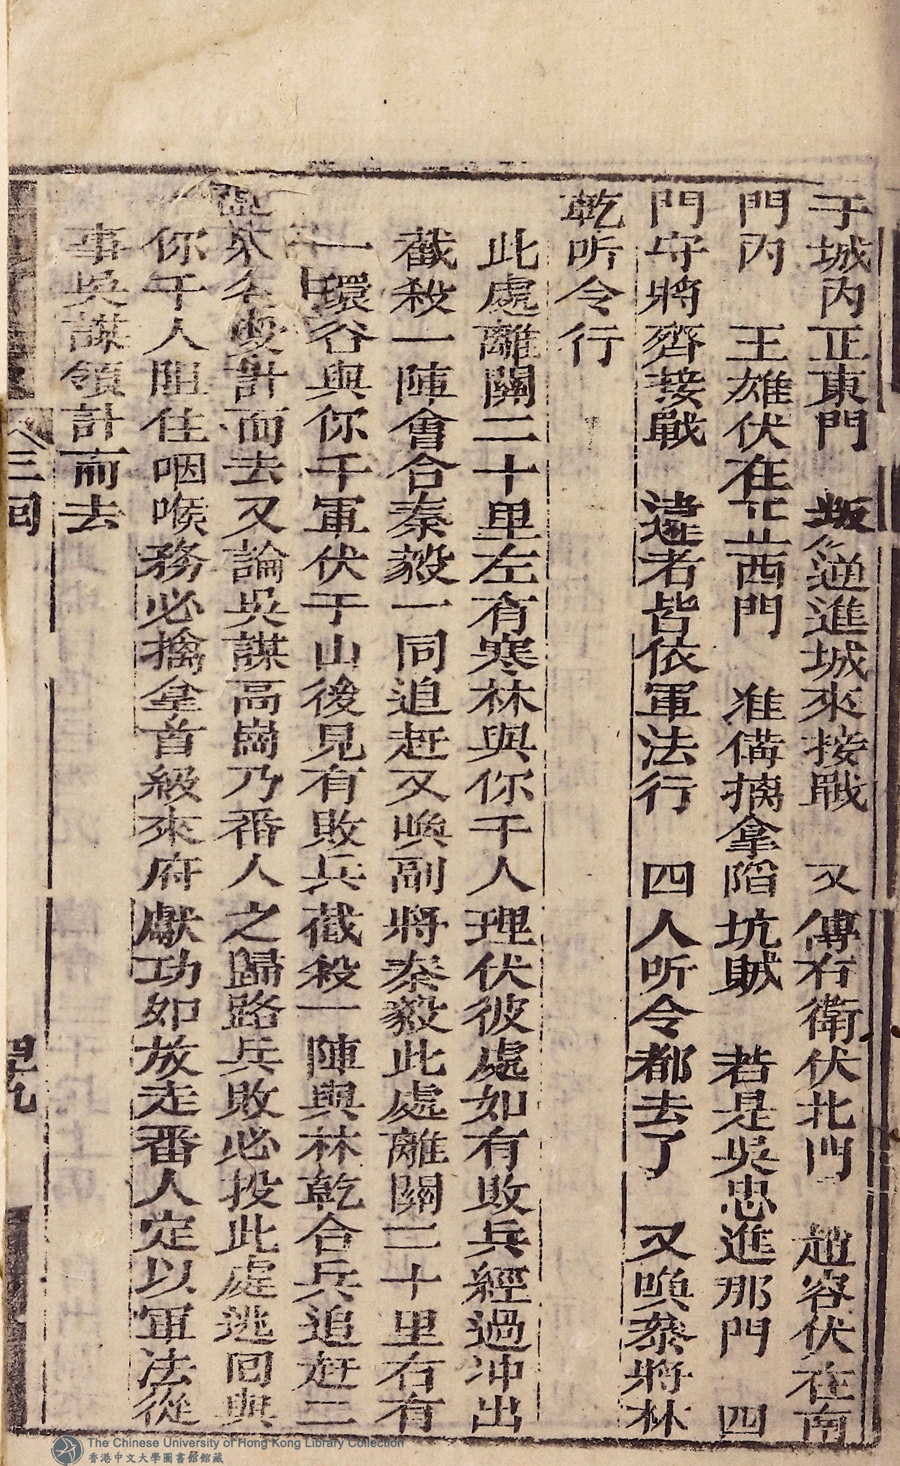 于城内正東門　叛人逆進城來接戰　又傳右衛伏北門　趙容伏在南
門丙　王雄伏在正西門　准俻擒拿陷坑賊　若是吳忠進那門　四
門守將齊接戰　違者皆依軍法行　四人听令都去了　又喚叅將林
乾听令行
此處離關二十里左有寒林與你千人理伏彼處如有敗兵經過冲出
截殺一陣會合秦毅一同追赶又喚副將秦毅此處離關三十里右有
一環谷與你千軍伏于山後見有敗兵截殺一陣與林乾合兵追赶二
日受計而去又論吳謀高崗乃番人之歸路兵敗必投此處逃回與
你千人阻住咽喉務必擒拿首級來府獻功如放走番人定以軍法從
事吳謀領計而去
三囘
四九
The Chinese University of Hong Kong Library Collection
香港中文大學圖書館館藏